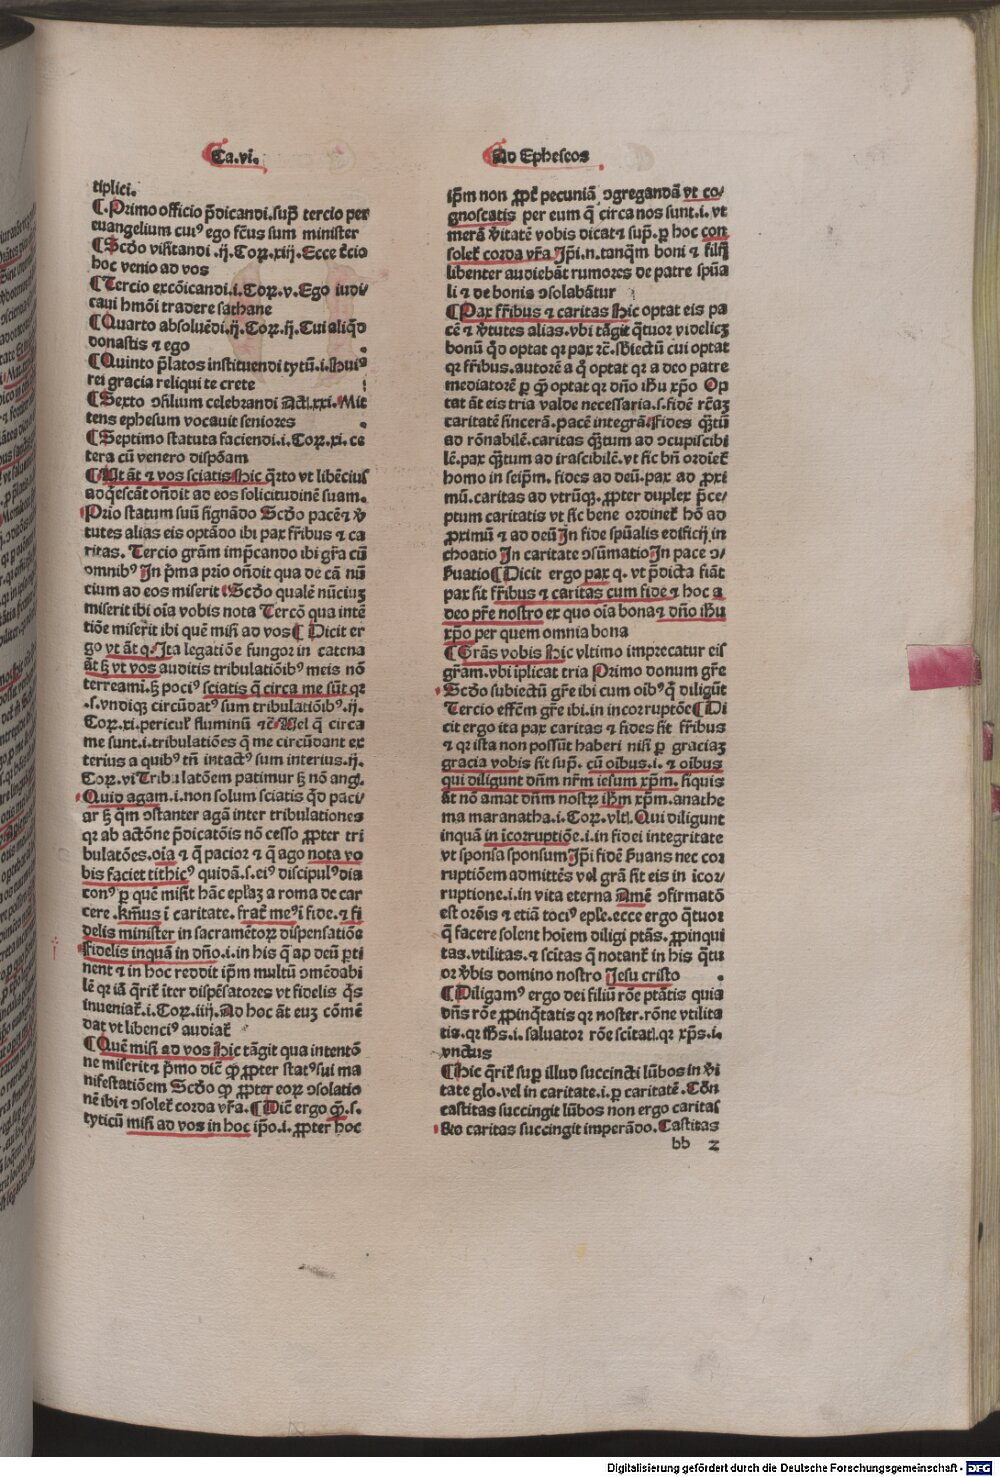 Ca.vi.
Ad Ephesos
tiplici.
¶.Primo officio p̄dicandi.sup̄ tercio per
euangelium cuiꝰ ego fc̄us sum minister
¶Scd̄o visitandi .ij.Coꝝ.xiij.Ecce t̄cio
hoc venio ad vos
¶Tercio excōicandi.i.Coꝝ.v.Ego iudi/
caui hmōi tradere sathane
¶Quarto absoluēdi.ij.Coꝝ.ij.Cui aliq̄d
donastis ⁊ ego
¶Quinto p̄latos instituendi tytū.i.Huiꝰ
rei gracia reliqui te crete
¶Sexto ↄsilium celebrandi Act.xxi.Mit
tens ephesum vocauit seniores
¶Septimo statuta faciendi.i.Coꝝ.xi.ce
tera cū venero dispōam
¶Ut āt ⁊ vos sciatis Hic q̄rto vt libēciuſ
adq̄escāt on̄dit ad eos solicitudinē suam.
Prīo statum suū signādo Scd̄o pacē⁊ v̄
tutes alias eis optādo ibi pax fr̄ibus ⁊ ca
ritas. Tercio grām imp̄cando ibi gr̄a cū
omnibꝰ In p̄ma prio on̄dit qua de cā nū
cium ad eos miserit Scd̄o qualē nūciuꝫ
miserit ibi oīa vobis nota Tercō qua intē
tiōe miserit ibi quē misi ad vos ¶Dicit er
go vt āt q.Ita legatiōe fungor in catena
āt ꝫ vt vos auditis tribulatiōibꝰ meis nō
terreami.ꝫ pociꝰ sciatis q̄ circa me sūt qꝛ
.s.vndiqꝫ circūdatꝰ sum tribulatiōibꝰ.ij.
Coꝝ.xi.pericul' fluminū ⁊c̄ Vel q̄ circa
me sunt.i.tribulatiōes q̄ me circūdant ex
terius a quibꝰ tn̄ intactꝰ sum interius.ij.
Coꝝ.vi Tribulatōem patimur ꝫ nō anḡ.
Quid agam.i.non solum sciatis q̄d paci/
ar ꝫ q̄m ↄstanter agā inter tribulationes
qꝛ ab actōne p̄dicatōis nō cesso ꝓpter tri
bulatōes.oīa ⁊ q̄ pacior ⁊ q̄ ago nota vo
bis faciet tithicꝰ quidā.s.eiꝰ discipulꝰdia
conꝰ ꝑ quē misit hāc ep̄laꝫ a roma de car
cere .km̄us ī caritate. frat̄ meꝰī fide.⁊ fi
delis minister in sacramētoꝝ dispensatiōe
Fidelis inquā in dn̄o.i.in his q̄ ad deū ꝑti
nent ⁊ in hoc reddit ip̄m multū ↄmēdabi
lē qꝛ iā q̄rit̄ īter dispēsatores vt fidelis q̄s
inueniat̄.i.Coꝝ.iiij.Ad hoc āt euꝫ cōmē
dat vt libenciꝰ audiat̄
¶Quē misi ad vos Hic tāgit qua intentō
ne miserit⁊ p̄mo dic̄ ꝙ ꝓpter statꝰsui ma
nifestatiōem Scd̄o ꝙ ꝓpter eoꝝ ↄsolatio
nē ibi⁊ ↄsolet̄ corda vr̄a.¶Dic̄ ergo ꝙ.s.
tyticū misi ad vos in hoc ip̄o.i.ꝓpter hoc
ip̄m non ꝓpt̄ pecuniā ↄgregandā vt co/
gnoscatis per eum q̄ circa nos sunt.i.vt
merā v̄itatē vobis dicat⁊ sup̄.ꝑ hoc con
solet̄ corda vr̄a Ip̄i.n.tanq̄m boni ⁊ filij
libenter audiebāt rumores de patre sp̄ua
li ⁊ de bonis ↄsolabātur
¶Pax fr̄ibus ⁊ caritas Hic optat eis pa
cē ⁊ v̄tutes alias.vbi tāgit q̄tuor videlicꝫ
bonū q̄d optat qꝛ pax ⁊c̄.sb̄iectū cui optat
qꝛ fr̄ibus.autorē a q̄ optat qꝛ a deo patre
mediatorē ꝑ q̄ optat qꝛ dn̄o ih̄u xp̄o Op
tat āt eis tria valde necessaria.s.fidē rēaꝫ
caritatē sincerā.pacē integrā.Fides q̄tū
ad rōnabilē.caritas q̄tum ad ↄcupiscibi
lē.pax q̄tum ad irascibilē.vt sic bn̄ ordiet̄
homo in seip̄m. fides ad deū.pax ad ꝓxi
mū.caritas ad vtrūqꝫ.ꝓpter duplex p̄ce/
ptum caritatis vt sic bene ordinet̄ hō ad
ꝓximū ⁊ ad deū In fide sp̄ualis edificij in
choatio In caritate ↄsūmatio In pace ↄ/
ẜuatio ¶Dicit ergo pax q. vt p̄dicta fiāt
pax sit fr̄ibus ⁊ caritas cum fide ⁊ hoc a
deo pr̄e nostro ex quo oīa bona⁊ dn̄o ih̄u
xp̄o per quem omnia bona
¶Grās vobis Hic vltimo imprecatur eis
gr̄am.vbi iplicat tria Primo donum gr̄e
Scd̄o subiectū gr̄e ibi cum oibꝰq̄ diligūt
Tercio effēm gr̄e ibi.in incorruptōe ¶Di
cit ergo ita pax caritas ⁊ fides sit fr̄ibus
⁊ qꝛ ista non possūt haberi nisi ꝑ graciaꝫ
gracia vobis sit sup̄. cū oibus.i.⁊ oibus
qui diligunt dn̄m nr̄m iesum xp̄m. siquis
āt nō amat dn̄m nostꝝ ih̄m xp̄m.anathe
ma maranatha.i.Coꝝ.vlt.Qui diligunt
inquā in īcorruptiōe.i.in fidei integritate
vt sponsa sponsum Ip̄i fidē ẜuans nec cor
ruptiōem admittēs vel grā sit eis in īcor/
ruptione.i.in vita eterna Amē ↄfirmatō
est orōis ⁊ etiā tociꝰ eple.ecce ergo q̄tuor
q̄ facere solent hoīem diligi ptās. ꝓpinqui
tas.vtilitas.⁊ scītas q̄ notant̄ in his q̄tu
or v̄bis domino nostro Jesu cristo
¶Diligamꝰ ergo dei filiū rōe ptātis quia
dn̄s rōe ꝓpinq̄tatis qꝛ noster.rōne vtilita
tis.qꝛ ih̄s.i.saluator rōe scītat.qꝛ xp̄s.i.
vnctus
¶Hic q̄rit̄ suꝑ illud succincti lūbos in v̄i
tate glo.vel in caritate.i.ꝑ caritatē.Cōn
castitas succingit lūbos non ergo caritas
Sed caritas succingit imperādo.Castitas
bb 2
Digitalisierung gefördert durch die Deutsche Forschungsgemeinschaft - DFG